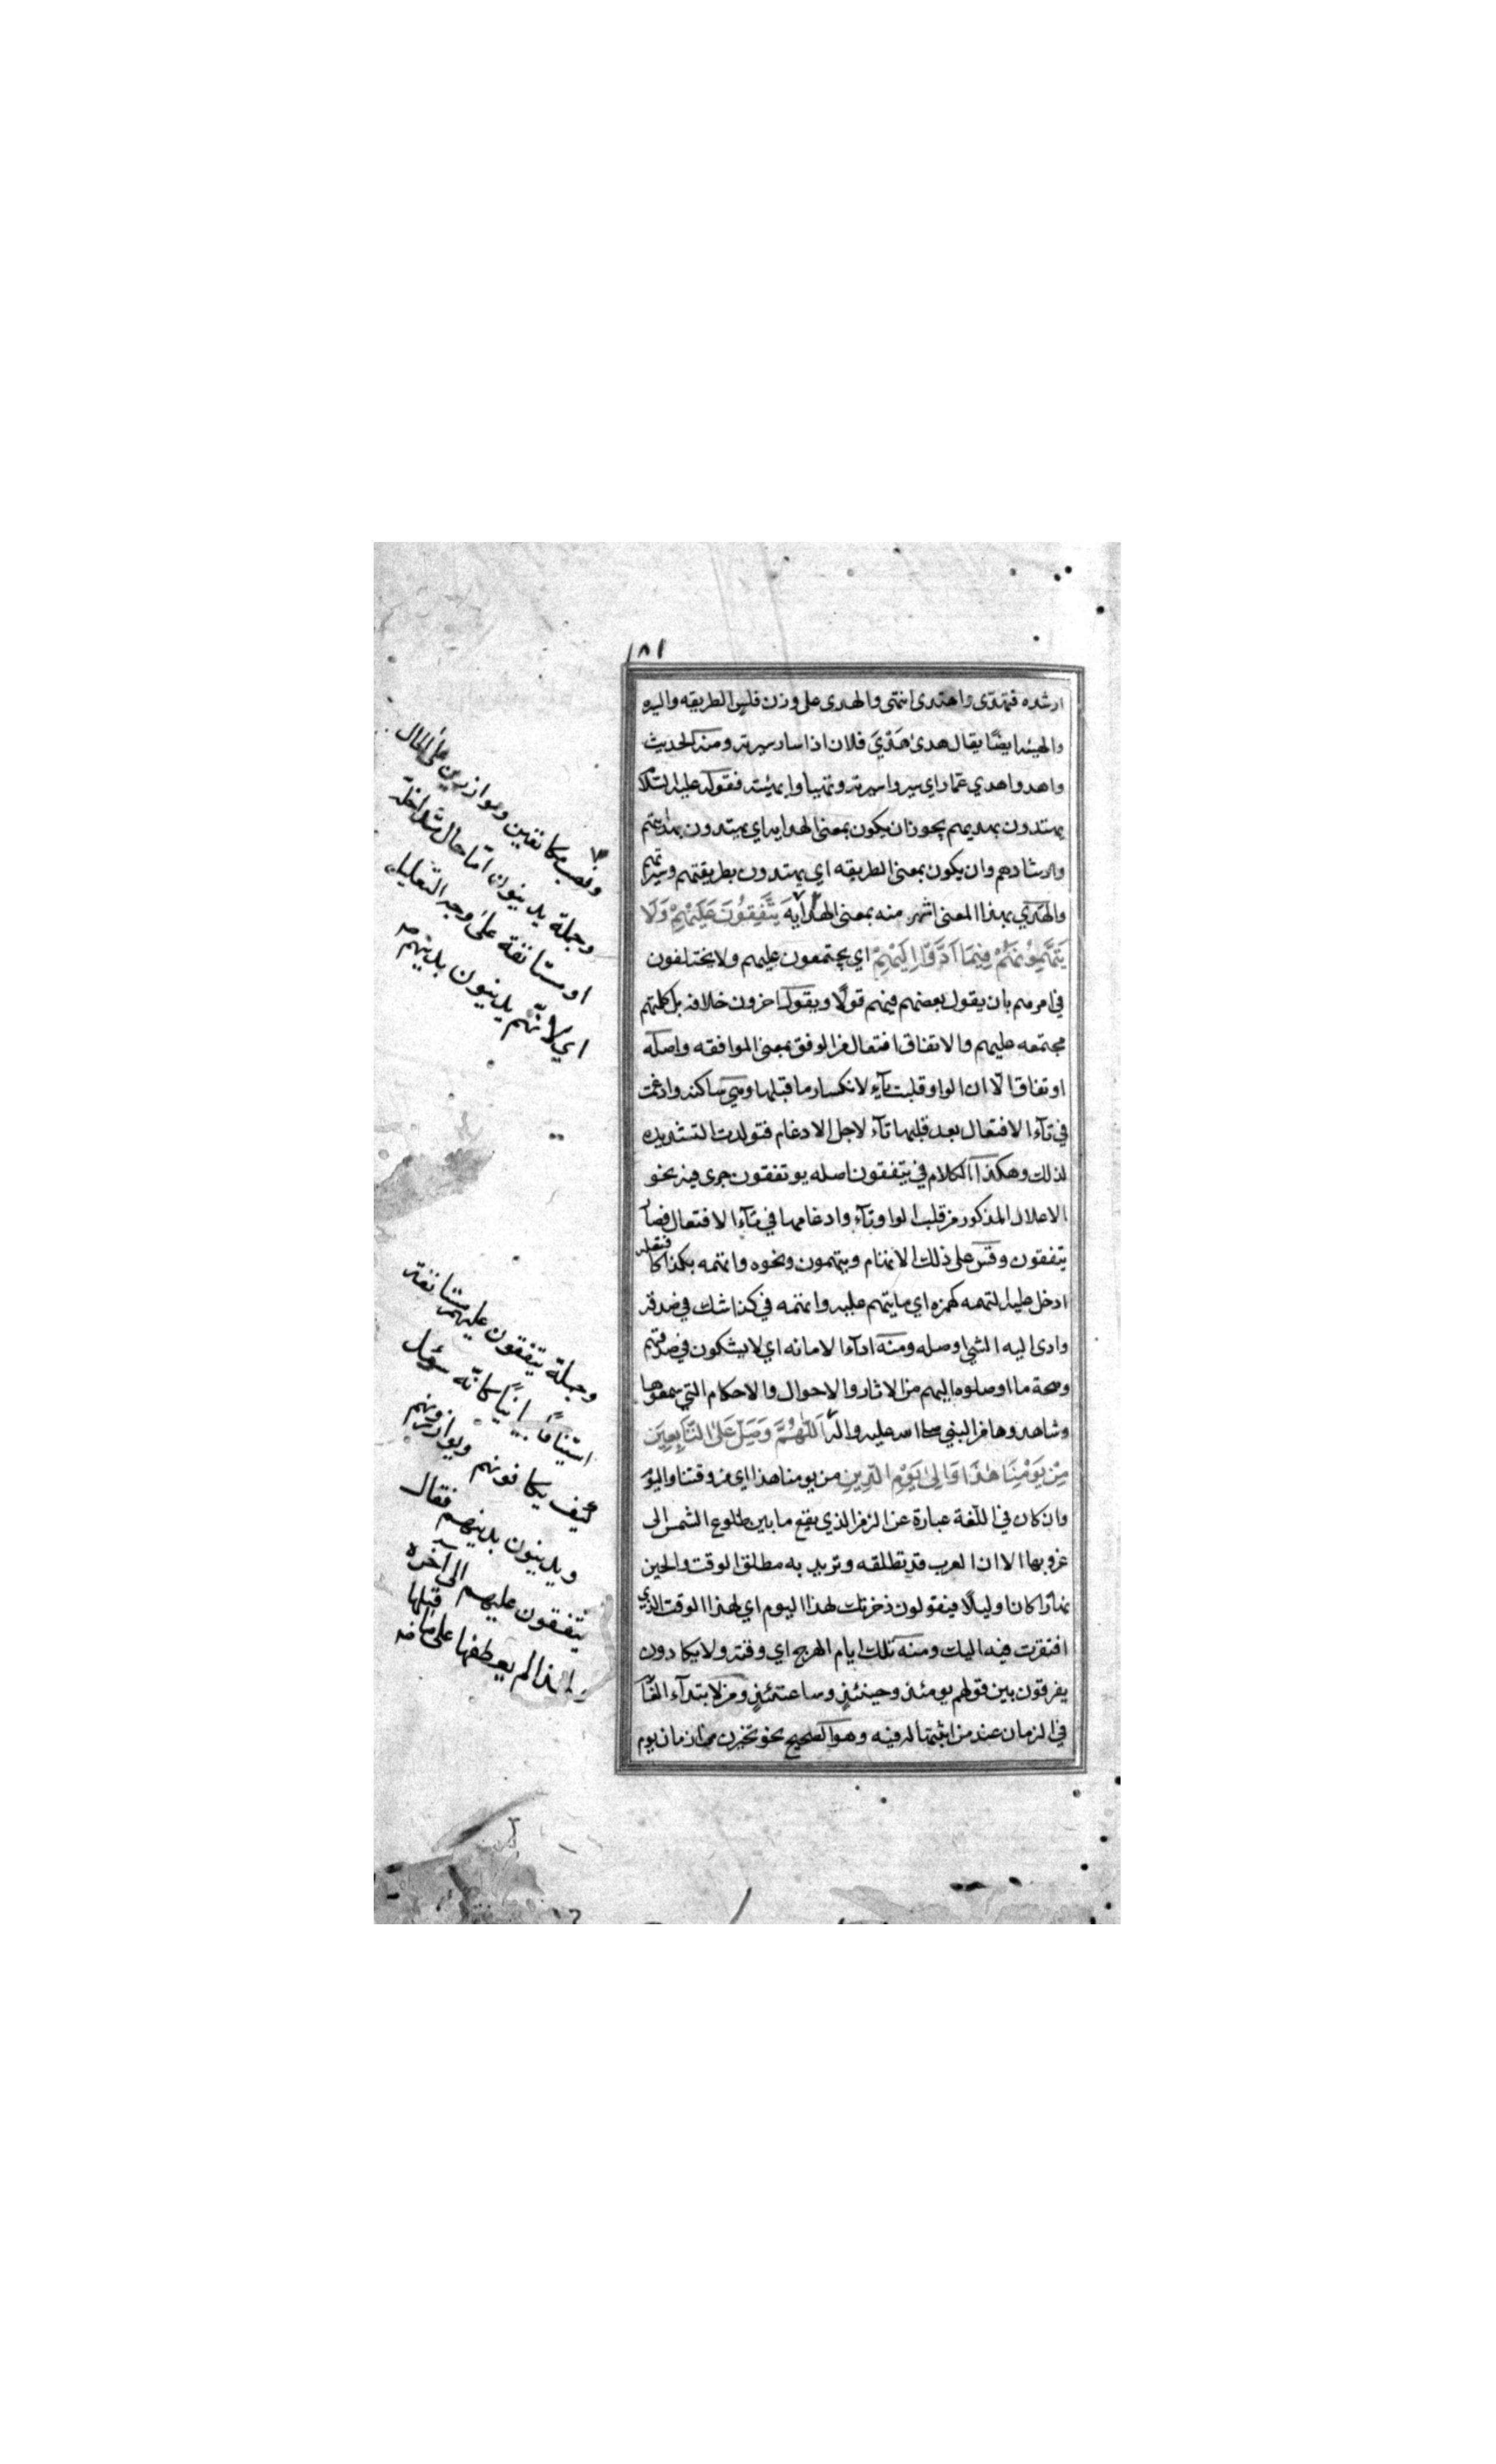 ١٨١
ارشده فتهدى واهتدى انتهى والهدى على وزن فلس الطريقه والسيره
والهيئه ايضًا يقال هدى هَدْيَ فلان اذا سار سيرته ومنه الحديث
واهدوا هدي عمار اي سيروا سيرته وتهيأوا بهيئته فقوله عليه السلام
يهتدون بهديهم يجوز ان يكون بمعنى الهدايه اي يهتدون بهدايتهم
وارشادهم وان يكون بمعنى الطريقه اي يهتدون بطريقتهم وسيرتهم
والهدي بهذا المعنى اشهر منه بمعنى الهدايه يَتَّفِقُونَ عَلَيْهِمْ وَلَا
يَتَّهِمُونَهُمْ فِيمَا اَدَّوْا اِلَيْهِمْ اي يجتمعون عليهم ولا يختلفون
في امرهم بان يقول بعضهم فيهم قولًا ويقول اخرون خلافه بل كلمتهم
مجتمعه عليهم والاتفاق افتعال من الوفق بمعنى الموافقه واصله
اوتفاق الّا ان الواو قلبت ياء لانكسار ما قبلها وهي ساكنه وادغمت
في تآء الافتعال بعد قلبها تآء لاجل الادغام فتولدت التشديده
لذلك وهكذا الكلام في يتفقون اصله يوتفقون جرى فيه نحو
الاعلال المذكور من قلب الواو تآء وادغامها في تآء الافتعال فصار
يتفقون وقس على ذلك الاتهام ويتهمون ونحوه واتهمه بكذا كافتعله
ادخل عليه التهمه كهمزه اي ما يتهم عليه واتهمه في كذا شك في صدقه
وادى اليه الشيء اوصله ومنه ادآء الامانه اي لا يشكون في صدقهم
وصحة ما اوصلوه اليهم من الاثار والاحوال والاحكام التي سمعوها
وشاهدوها من النبي صلى الله عليه واله اَللّٰهُمَّ وَصَلِّ عَلَى التَّابِعِينَ
مِنْ يَوْمِنَا هٰذَا وَاِلٰى يَوْمِ الدِّينِ من يومنا هذا اي من وقتنا واليوم
وان كان في اللّغة عبارة عن الزمن الذي يقع ما بين طلوع الشمس الى
غروبها الا ان العرب قد تطلقه وتريد به مطلق الوقت والحين
نهارًا كان او ليلًا فيقولون ذخرتك لهذا اليوم اي لهذا الوقت الذي
افتقرت فيه اليك ومنه تلك ايام الهرج اي وقته ولا يكادون
يفرقون بين قولهم يومئذ وحينئذ وساعتئذ ومن لابتدآء الغاية
في الزمان عند من اثبتها له فيه وهو الصحيح نحو تخيرن من ازمان يوم
ونصب مكانفين وموازرين على الحال
وجملة يدينون امّا حال متداخلة
او مستانفة على وجه التعليل
اي لانّهم يدينون بدينهم
وجملة يتفقون عليهم مستانفة
استينافًا بيانيًا كانّه سوئل
كيف يكانفونهم ويوازرونهم
ويدينون بدينهم فقال
يتفقون عليهم الى آخره
ولهذا لم يعطفها على ما قبلها